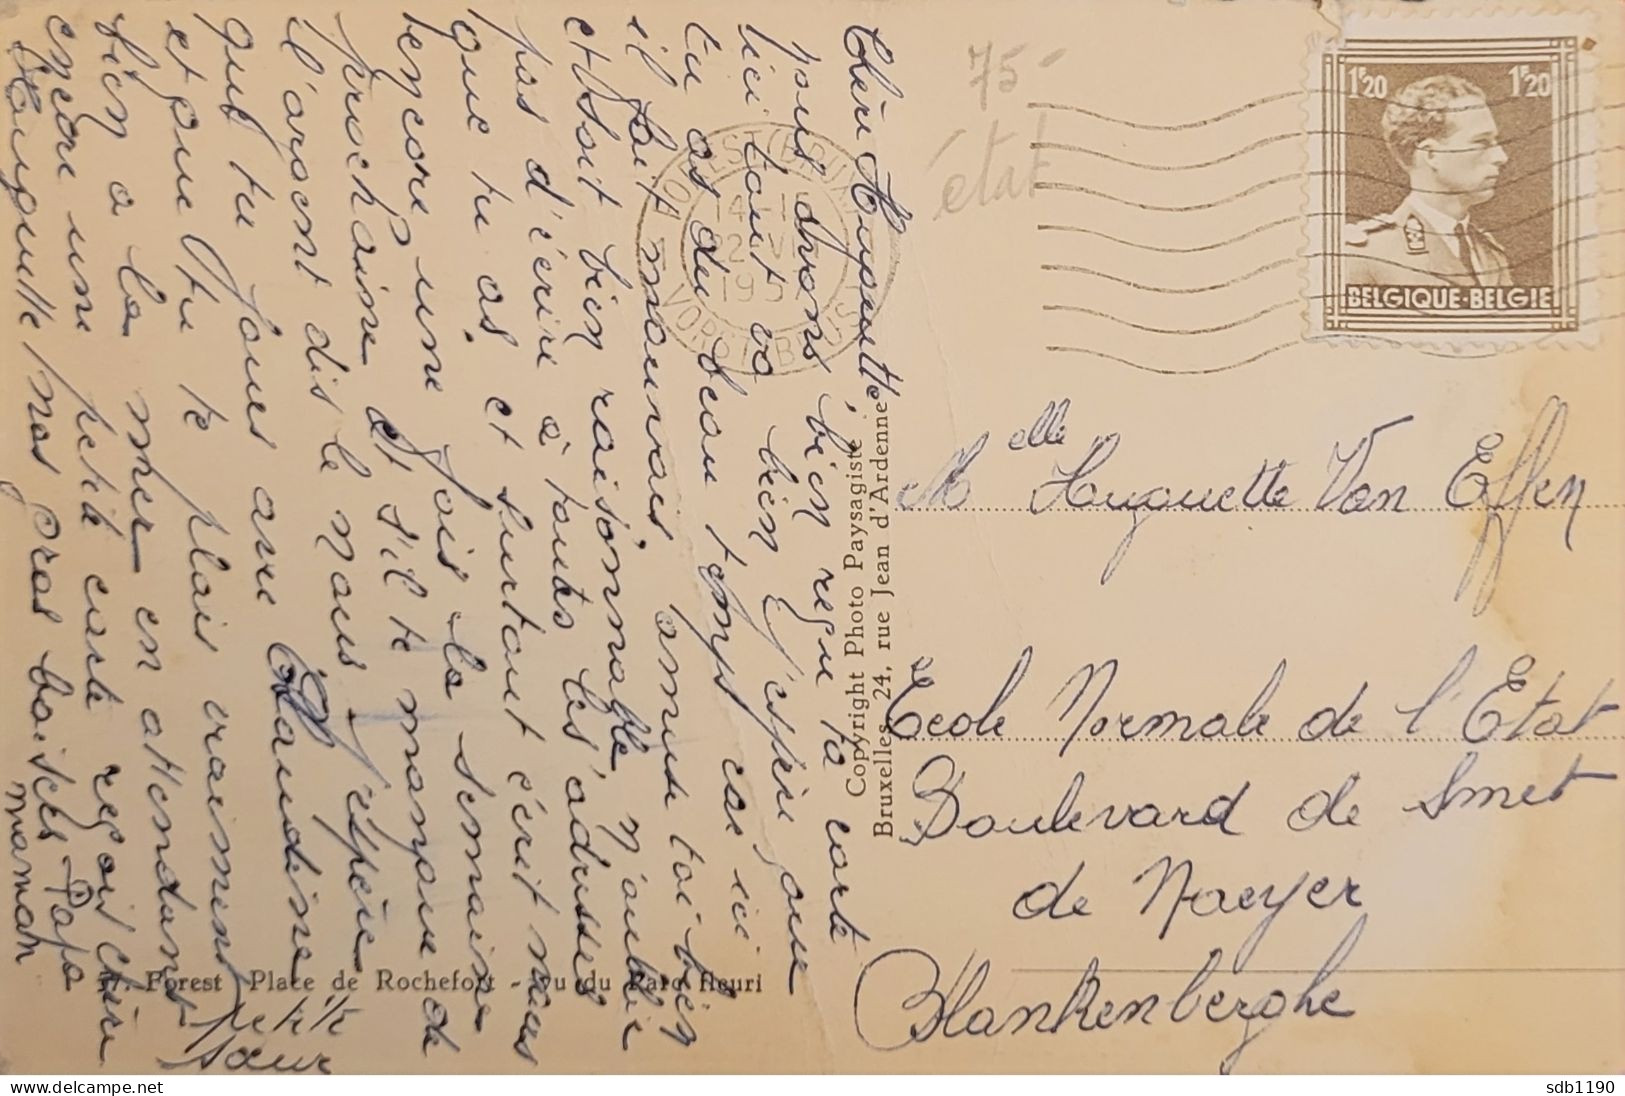 Chère Huguette,
nous avons bien reçu ta carte
ici tout va bien J'espère que
tu as du beau temps car ici
il fait mauvais, amuse toi bien
et soit bien raisonnable n'oublie
pas d'écrire à toutes les adresses
que tu as, et surtout écrit nous
encore une fois la semaine
prochaine et s'il te manque de
l'argent dis le nous J'espère
que tu joues avec Claudine
et que tu te plais vraiment
bien a la mer en attendant
encore une petite carte reçoit chère
Huguette nos gros baisers Papa
maman
petite
sœur
75-
état
1F20 1F20
BELGIQUE-BELGIE
FOREST (BRUX.)
VORST (BRUS.)
Copyright Photo Paysagiste
Bruxelles, 24, rue Jean d'Ardenne
Forest Place de Rochefort - Vu du Parc fleuri
Melle Huguette Van Effen
Ecole Normale de l'Etat
Boulevard de Smet
de Naeyer
Blankenberghe
delcampe.net
sdb1190